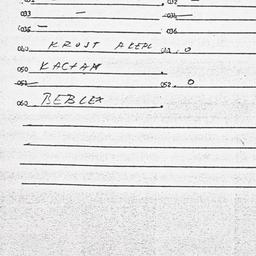 033 — 034 —
035 — 036
040 KROST ALEPL 041. 0
050 KACHAM
051 — 052. 0
060 BEBLEX